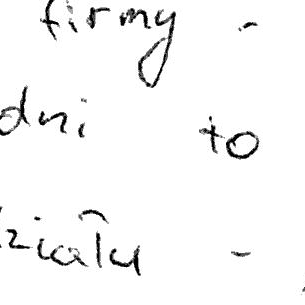 firmy -
dni to
działu -